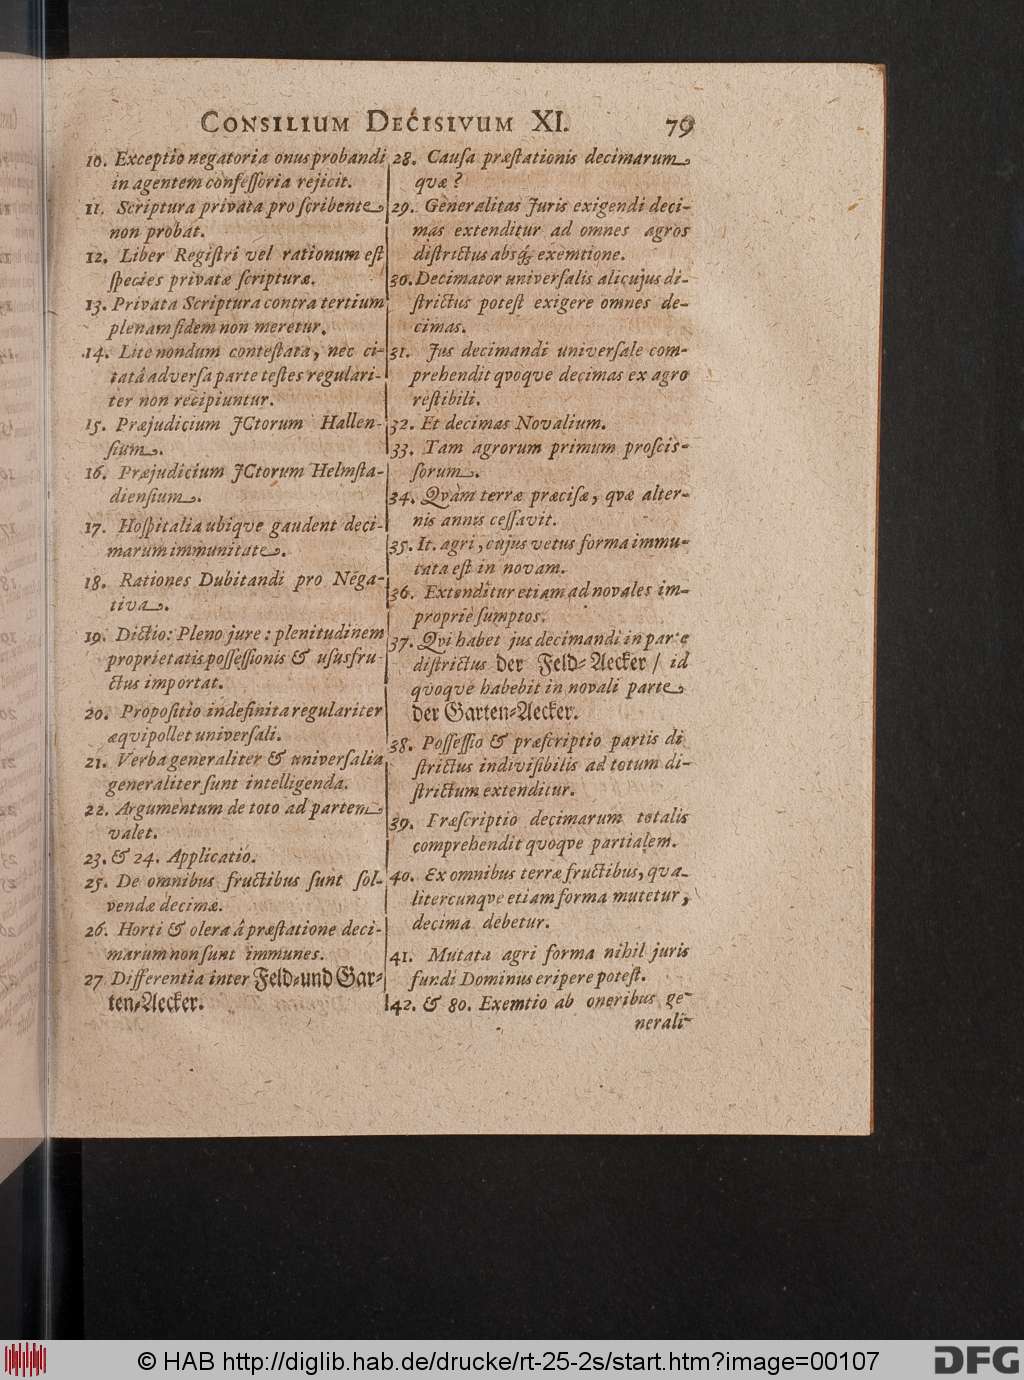 CONSILIUM DECISIVUM XI. 79
10. Exceptio negatoria onus probandi
in agentem confessoria rejicit.
11. Scriptura privata pro scribente
non probat.
12. Liber Registri vel rationum est
species privatæ scripturæ.
13. Privata Scriptura contra tertium
plenam fidem non meretur.
14. Lite nondum contestata, nec ci-
tatâ adversa parte testes regulari-
ter non recipiuntur.
15. Præjudicium JCtorum Hallen-
sium.
16. Præjudicium JCtorum Helmsta-
diensium.
17. Hospitalia ubiqve gaudent deci-
marum immunitate.
18. Rationes Dubitandi pro Nega-
tiva.
19. Dictio: Pleno jure: plenitudinem
proprietatis possessionis & ususfru-
ctus importat.
20. Propositio indefinita regulariter
æqvipollet universali.
21. Verba generaliter & universalia
generaliter sunt intelligenda.
22. Argumentum de toto ad partem
valet.
23. & 24. Applicatio.
25. De omnibus fructibus sunt sol-
vendæ decimæ.
26. Horti & olera â præstatione deci-
marum non sunt immunes.
27 Differentia inter Feld-und Gar-
ten-Aecker.
28. Causa præstationis decimarum
quæ?
29. Generalitas Juris exigendi deci-
mas extenditur ad omnes agros
districtus absq; exemtione.
30. Decimator universalis alicujus di-
strictus potest exigere omnes de-
cimas.
31. Jus decimandi universale com-
prehendit qvoqve decimas ex agro
restibili.
32. Et decimas Novalium.
33. Tam agrorum primum proscis-
sorum.
34. Qvàm terræ præcisæ, qvæ alter-
nis annis cessavit.
35. It. agri, cujus vetus forma immu-
tata est in novam.
36. Extenditur etiam ad novales im-
propriè sumptos.
37. Qvi habet jus decimandi in parte
districtus der Feld-Aecker / id
qvoqve habebit in novali parte
der Garten-Aecker.
38. Possessio & præscriptio partis di
strictus indivisibilis ad totum di-
strictum extenditur.
39. Præscriptio decimarum totalis
comprehendit qvoqve partialem.
40. Ex omnibus terræ fructibus, qva-
litercunqve etiam forma mutetur,
decima debetur.
41. Mutata agri forma nihil juris
fundi Dominus eripere potest.
42. & 80. Exemtio ab oneribus ge-
nerali-
© HAB http://diglib.hab.de/drucke/rt-25-2s/start.htm?image=00107
DFG